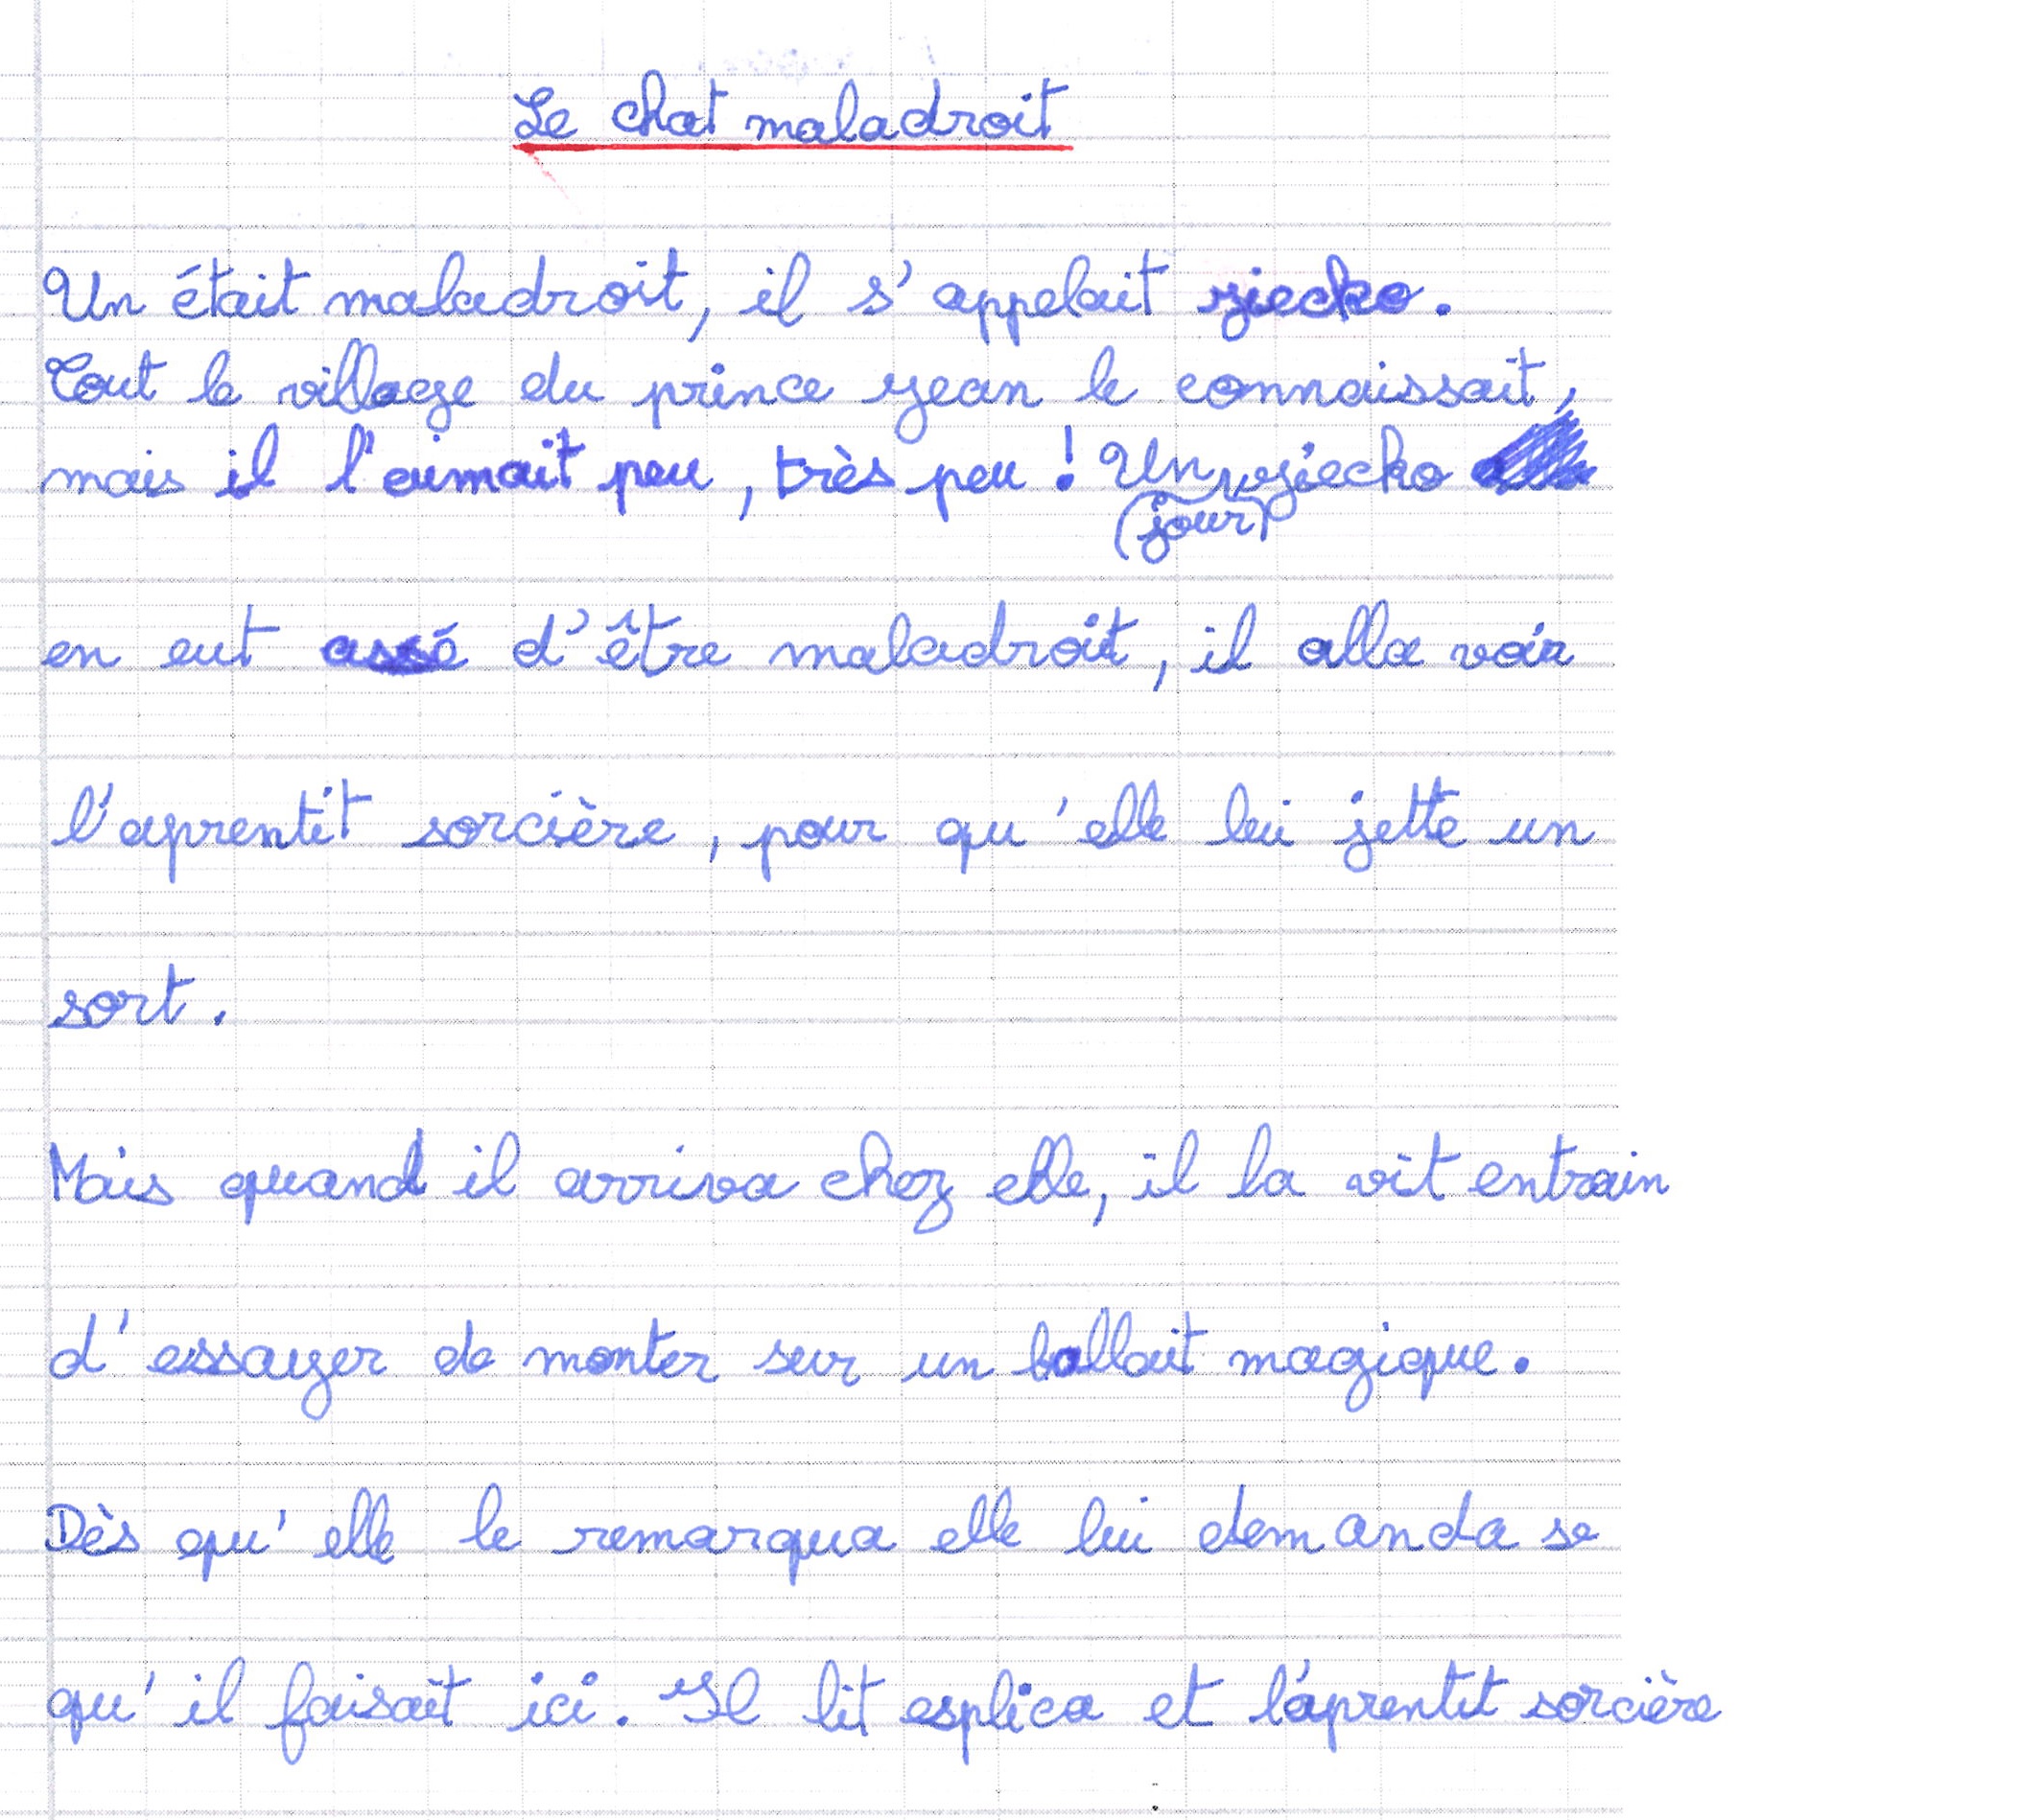 Le chat maladroit
Un était maladroit, il s'appelait jiecko.
Tout le villaege du prince Jean le connaissait,
mais il l'aimait peu, très peu ! Un jiecko
(jour)
en eut assé d'être maladroit, il alla voir
l'aprentit sorcière, pour qu'elle lui jette un
sort.
Mais quand il arriva chez elle, il la vit entrain
d'essayer de monter sur un ballait magique.
Dès qu'elle le remarqua elle lui demanda se
qu'il faisait ici. Il lit esplica et l'aprentit sorcière